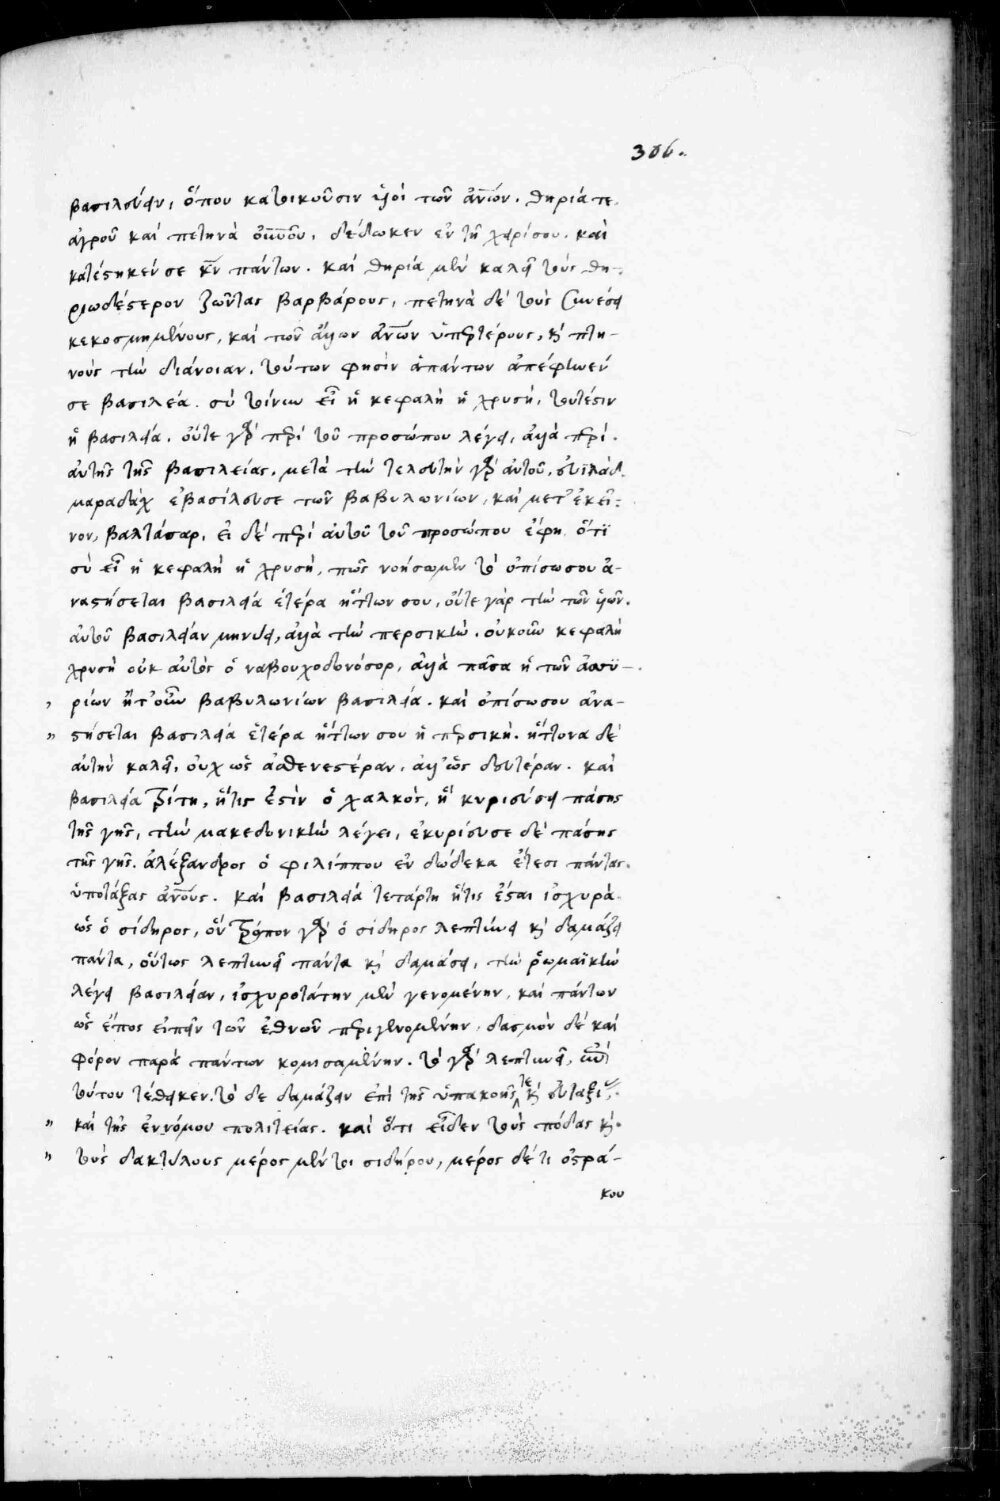 306.
βασιλεύειν, ὅπου κατοικοῦσιν υἱοὶ τῶν ἀν̅ων. θηρία τε
ἀγροῦ καὶ πετηνὰ οὐν̅οῦ. δέδωκεν ἐν τῇ χειρί σου. καὶ
κατέστησέν σε κν̅ πάντων. καὶ θηρία μὲν καλεῖ τοὺς θη-
ριωδέστερον ζῶντας βαρβάρους, πετηνὰ δὲ τοὺς συνέσει
κεκοσμημένους, καὶ τῶν ἄλλων ἀν̅ων ὑπερτέρους, καὶ πτη-
νοὺς τὴν διάνοιαν. τούτων φησὶν ἁπάντων ἀπέφηνέν
σε βασιλέα. σὺ τοίνυν εἶ ἡ κεφαλὴ ἡ χρυσῆ, τουτέστιν
ἡ βασιλεία. οὔτε γὰρ περὶ τοῦ προσώπου λέγει, ἀλλὰ περὶ
αὐτῆς τῆς βασιλείας. μετὰ τὴν τελευτὴν γὰρ αὐτοῦ,
μαραδὰχ ἐβασίλευσε τῶν βαβυλωνίων, καὶ μετ' ἐκεῖ-
νον, βαλτάσαρ. εἰ δὲ περὶ αὐτοῦ τοῦ προσώπου ἔφη ὅτι
σὺ εἶ ἡ κεφαλὴ ἡ χρυσῆ, πῶς νοήσωμεν τὸ ὀπίσω σου ἀ-
ναστήσεται βασιλεία ἑτέρα ἥττων σου, οὔτε γὰρ τὴν τῶν υἱῶν
αὐτοῦ βασιλείαν μηνύει, ἀλλὰ τὴν περσικήν. οὐκοῦν κεφαλὴ
χρυσῆ οὐκ αὐτὸς ὁ ναβουχοδονόσορ, ἀλλὰ πᾶσα ἡ τῶν ἀσσυ-
ρίων ἤτ' οὖν βαβυλωνίων βασιλεία. καὶ ὀπίσω σου ἀνα-
στήσεται βασιλεία ἑτέρα ἥττων σου ἡ περσική. ἥττονα δὲ
αὐτὴν καλεῖ, οὐχ ὡς ἀσθενεστέραν, ἀλλ' ὡς δευτέραν. καὶ
βασιλεία τρίτη, ἥτις ἐστὶν ὁ χαλκός, ἣ κυριεύσει πάσης
τῆς γῆς, τὴν μακεδονικὴν λέγει, ἐκυρίευσε δὲ πάσης
τῆς γῆς. ἀλέξανδρος ὁ φιλίππου ἐν δώδεκα ἔτεσι πάντας
ὑποτάξας ἀν̅ους. καὶ βασιλεία τετάρτη ἥτις ἔσται ἰσχυρὰ
ὡς ὁ σίδηρος, ὃν τρόπον γὰρ ὁ σίδηρος λεπτύνει καὶ δαμάζει
πάντα, οὕτως λεπτυνεῖ πάντα καὶ δαμάσει, τὴν ῥωμαϊκὴν
λέγει βασιλείαν, ἰσχυροτάτην μὲν γενομένην, καὶ πάντων
ὡς ἔπος εἰπεῖν τῶν ἐθνῶν περιγενομένην, δασμὸν δὲ καὶ
φόρον παρὰ πάντων κομισαμένην. τὸ γὰρ λεπτυνεῖ, ἀντὶ
τούτου τέθεικεν. τὸ δὲ δαμάζειν ἐπὶ τῆς ὑπακοῆς τε καὶ εὐταξίας
" καὶ τῆς ἐννόμου πολιτείας. καὶ ὅτι εἶδεν τοὺς πόδας καὶ
" τοὺς δακτύλους μέρος μέν τοι σιδήρου, μέρος δέ τι ὀστρά-
κου